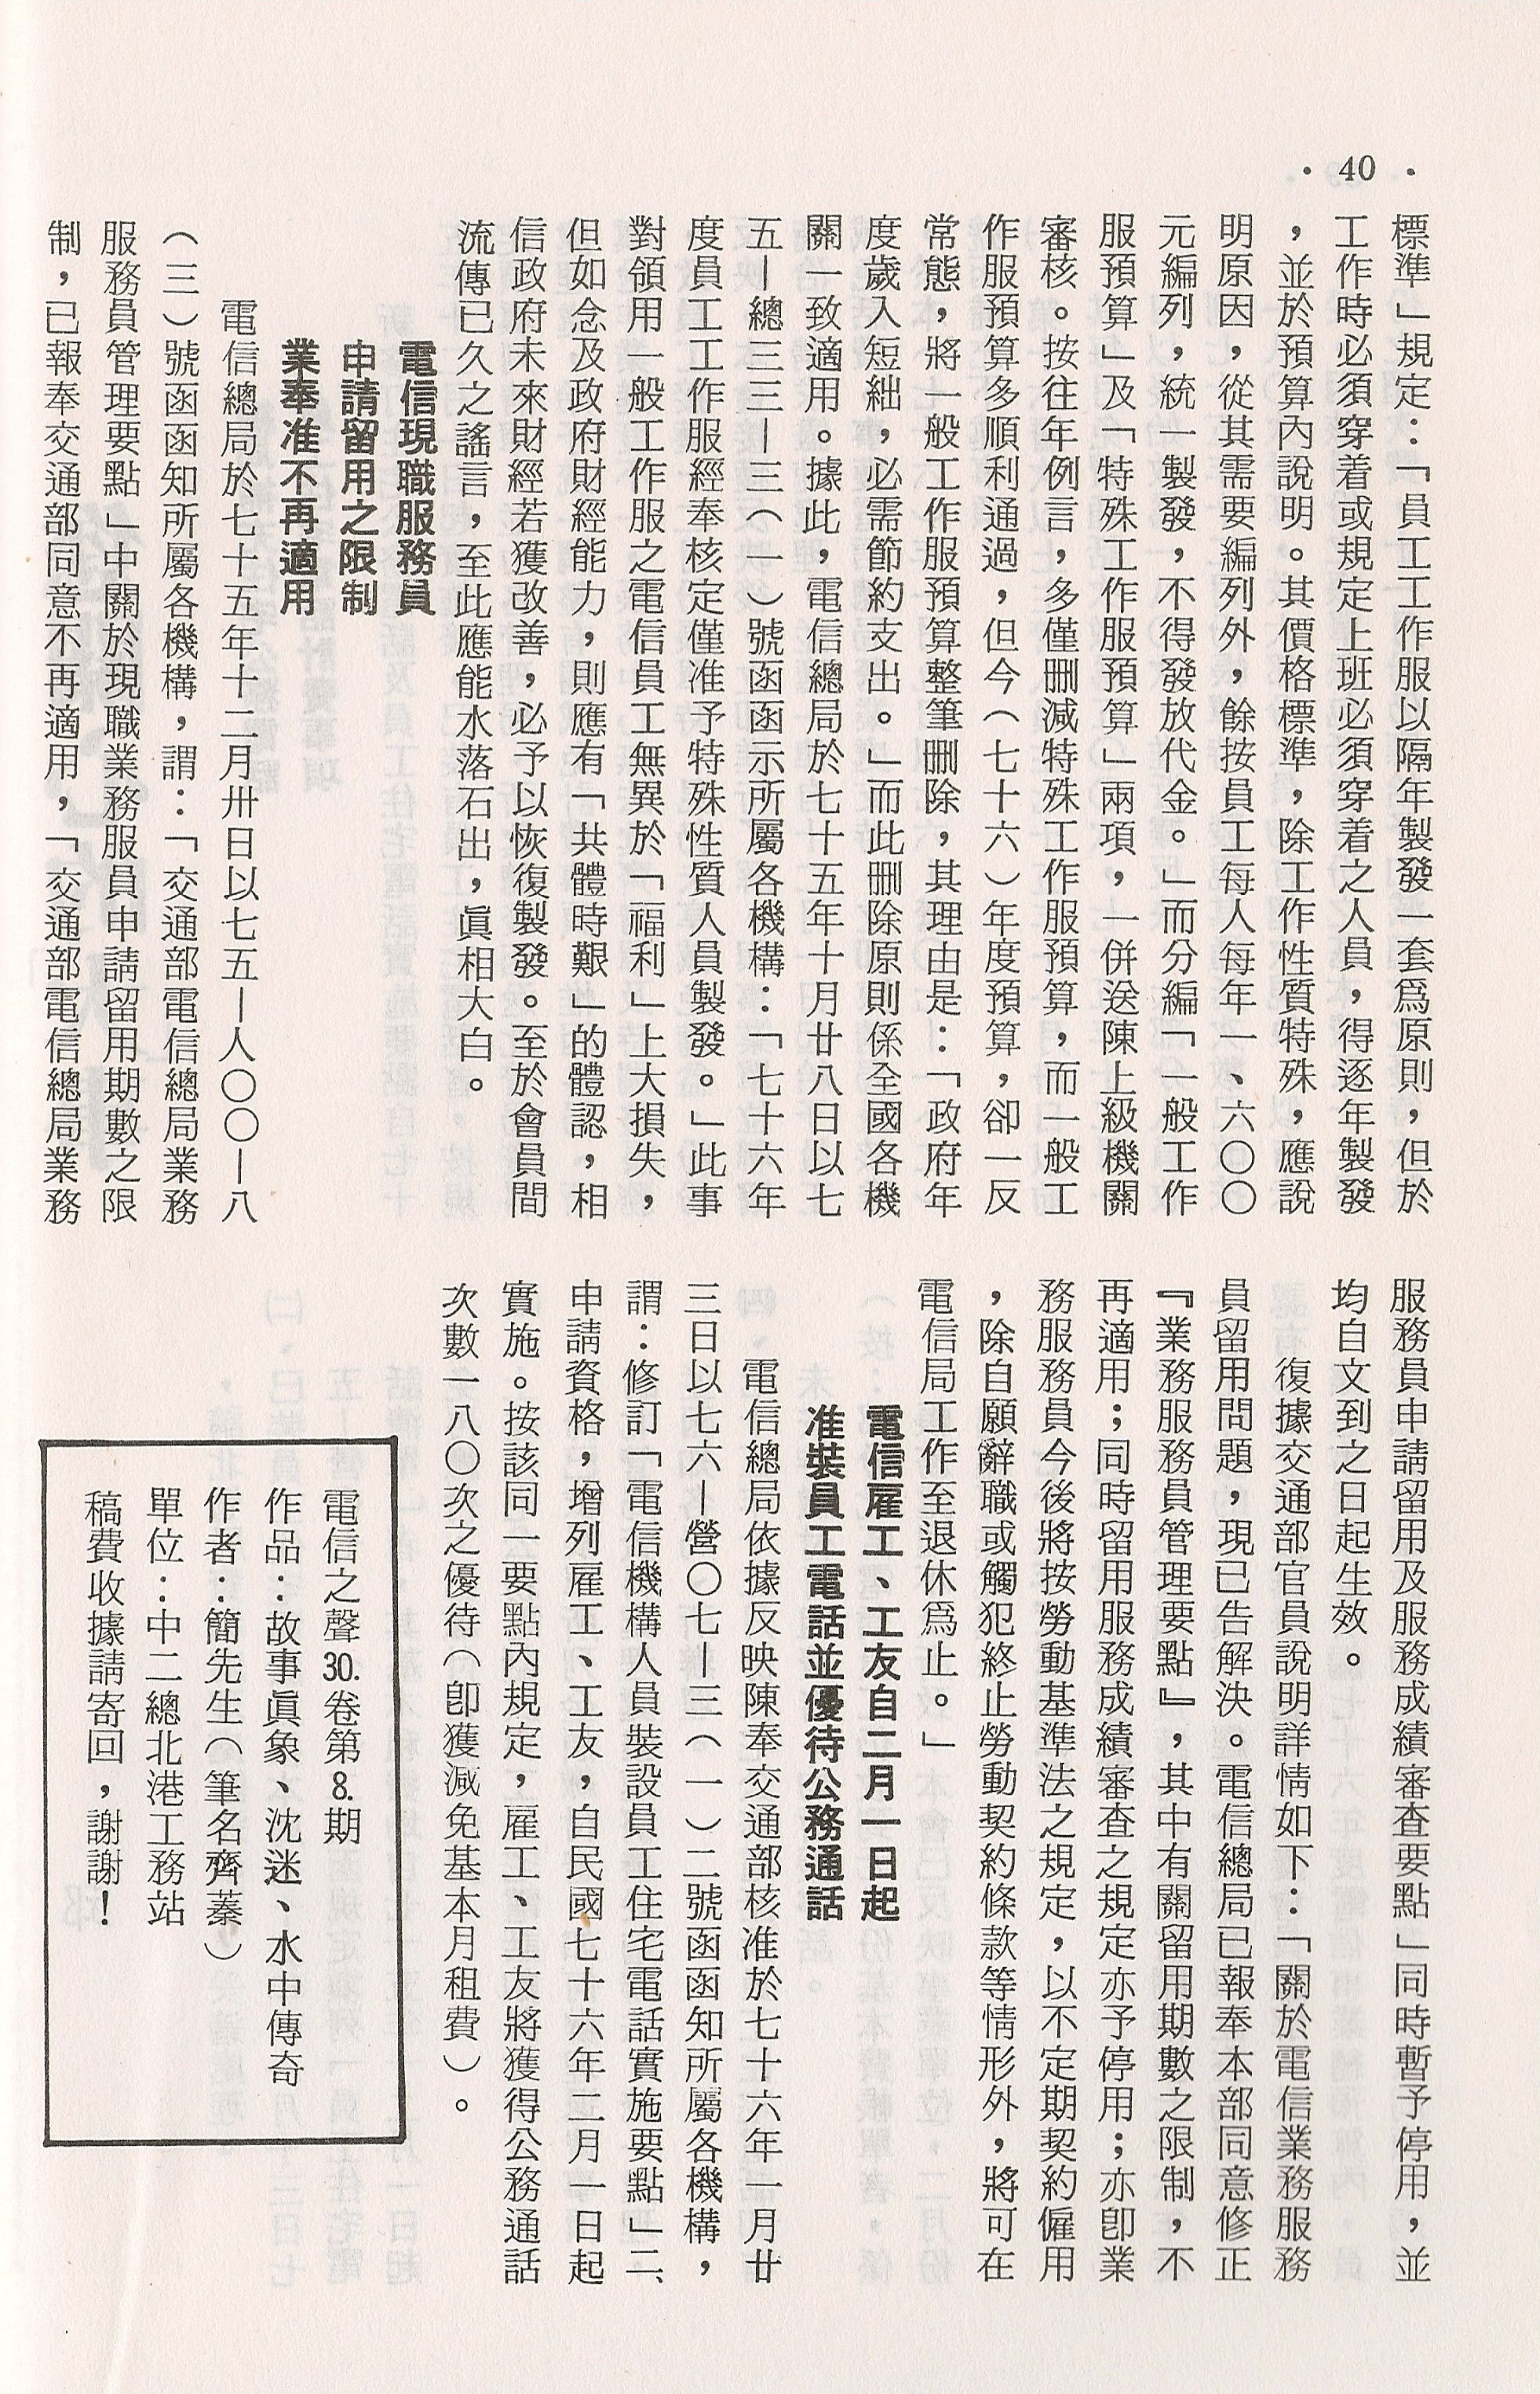 · 40 ·
標準」規定：「員工工作服以隔年製發一套為原則，但於
工作時必須穿着或規定上班必須穿着之人員，得逐年製發
，並於預算內說明。其價格標準，除工作性質特殊，應說
明原因，從其需要編列外，餘按員工每人每年一、六〇〇
元編列，統一製發，不得發放代金。」而分編「一般工作
服預算」及「特殊工作服預算」兩項，一併送陳上級機關
審核。按往年例言，多僅刪減特殊工作服預算，而一般工
作服預算多順利通過，但今（七十六）年度預算，卻一反
常態，將一般工作服預算整筆刪除，其理由是：「政府年
度歲入短絀，必需節約支出。」而此刪除原則係全國各機
關一致適用。據此，電信總局於七十五年十月廿八日以七
五－總三三－三（一）號函函示所屬各機構：「七十六年
度員工工作服經奉核定僅准予特殊性質人員製發。」此事
對領用一般工作服之電信員工無異於「福利」上大損失，
但如念及政府財經能力，則應有「共體時艱」的體認，相
信政府未來財經若獲改善，必予以恢復製發。至於會員間
流傳已久之謠言，至此應能水落石出，眞相大白。
電信現職服務員
申請留用之限制
業奉准不再適用
電信總局於七十五年十二月卅日以七五－人〇〇－八
（三）號函函知所屬各機構，謂：「交通部電信總局業務
服務員管理要點」中關於現職業務服員申請留用期數之限
制，已報奉交通部同意不再適用，「交通部電信總局業務
服務員申請留用及服務成績審查要點」同時暫予停用，並
均自文到之日起生效。
復據交通部官員說明詳情如下：「關於電信業務服務
員留用問題，現已告解決。電信總局已報奉本部同意修正
『業務服務員管理要點』，其中有關留用期數之限制，不
再適用；同時留用服務成績審查之規定亦予停用；亦卽業
務服務員今後將按勞動基準法之規定，以不定期契約僱用
，除自願辭職或觸犯終止勞動契約條款等情形外，將可在
電信局工作至退休為止。」
電信雇工、工友自二月一日起
准裝員工電話並優待公務通話
電信總局依據反映陳奉交通部核准於七十六年一月廿
三日以七六－營〇七－三（一）二號函函知所屬各機構，
謂：修訂「電信機構人員裝設員工住宅電話實施要點」二、
申請資格，增列雇工、工友，自民國七十六年二月一日起
實施。按該同一要點內規定，雇工、工友將獲得公務通話
次數一八〇次之優待（卽獲減免基本月租費）。
電信之聲30.卷第8.期
作品：故事眞象、沈迷、水中傳奇
作者：簡先生（筆名齊蓁）
單位：中二總北港工務站
稿費收據請寄回，謝謝！